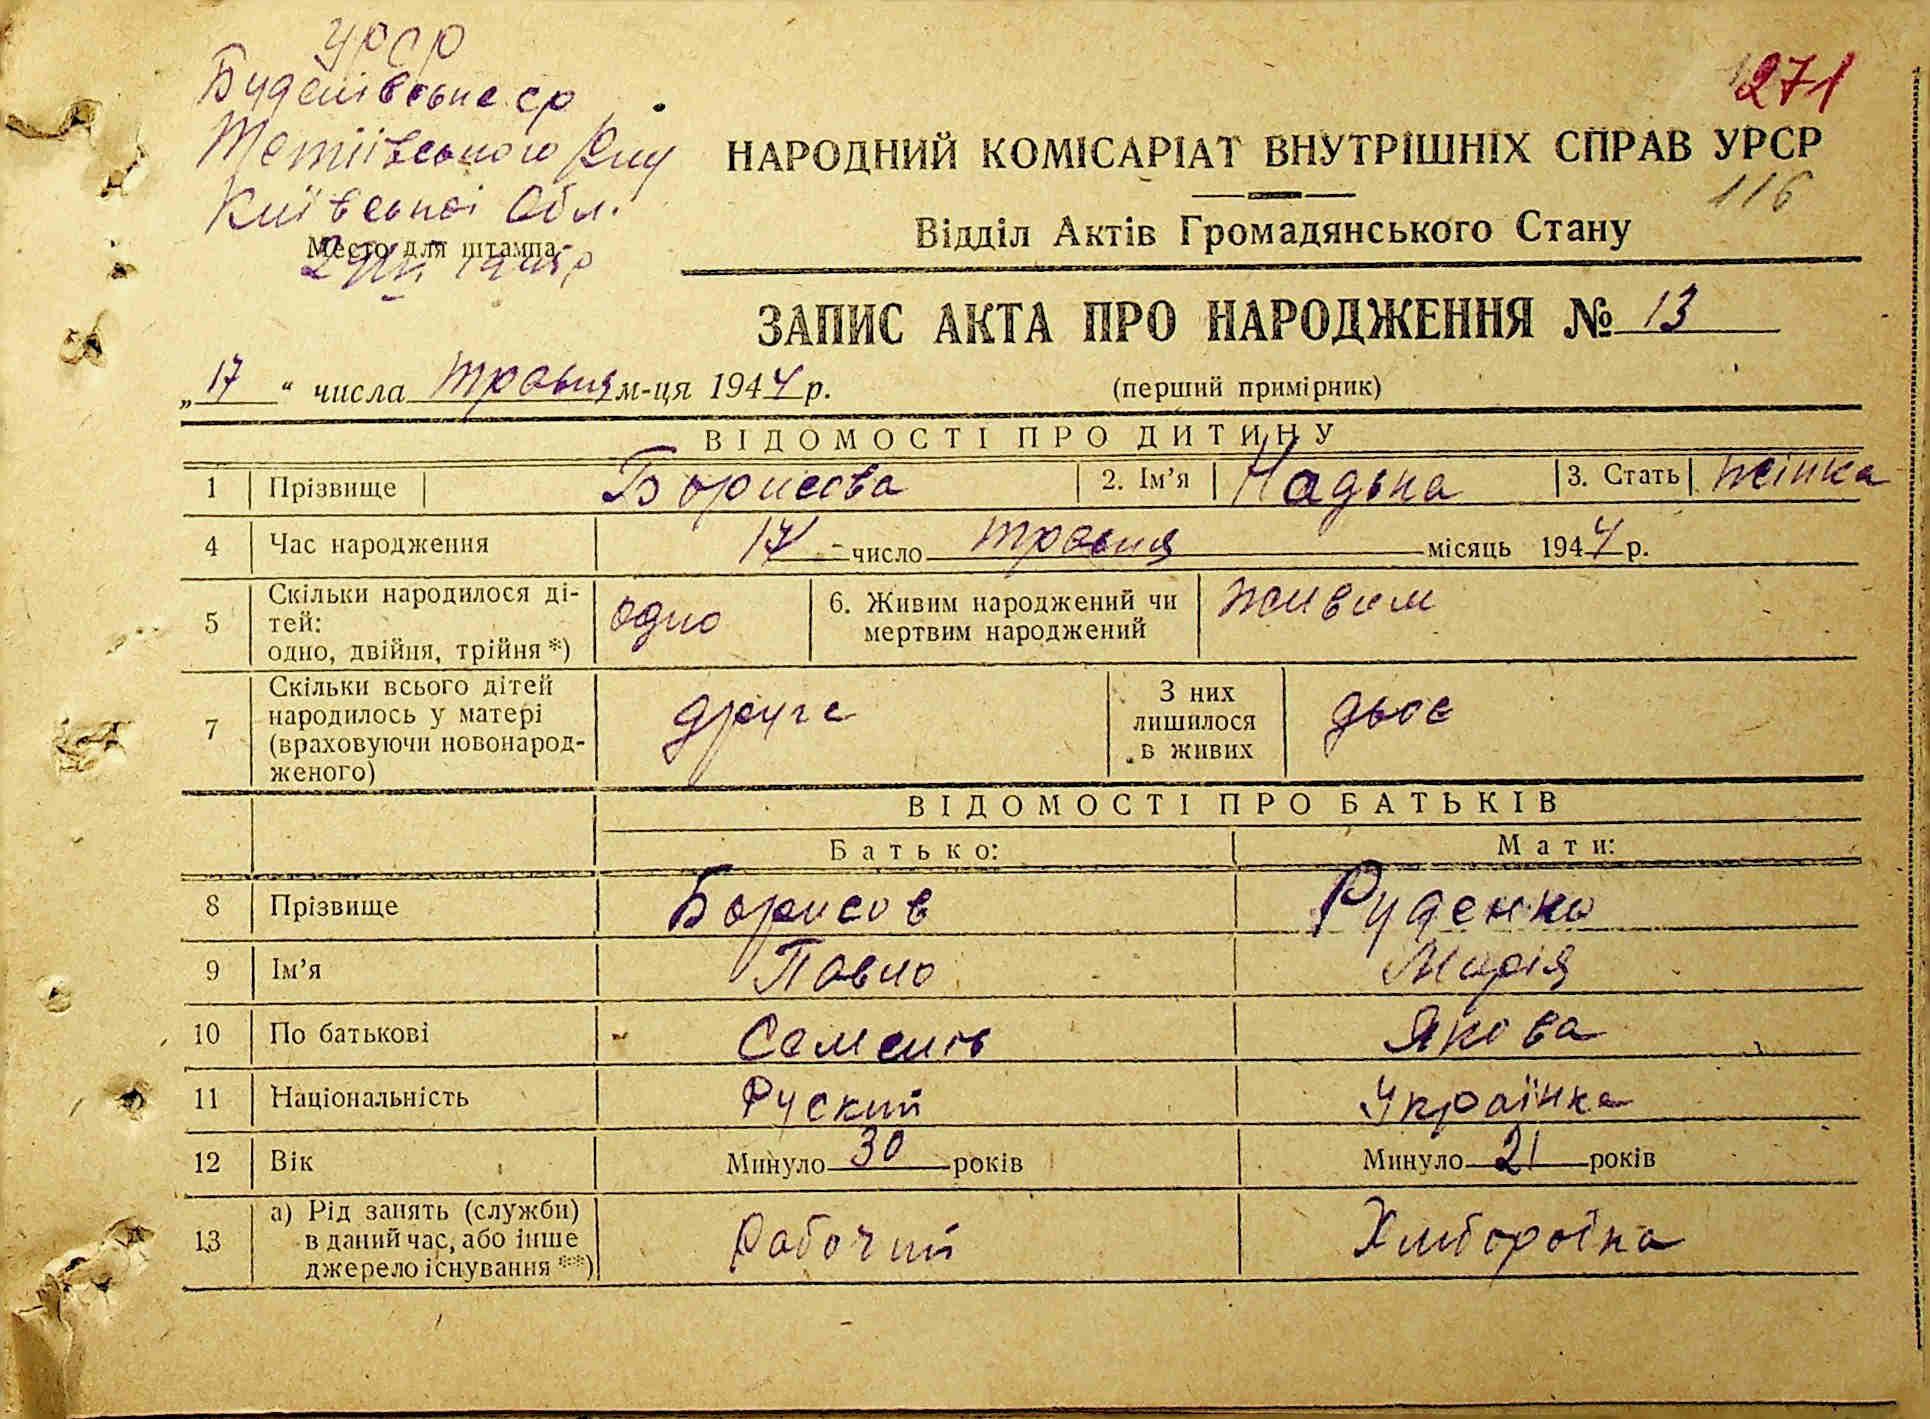 УРСР
271
Тетіївського р-ну
Київської Обл.
Место для штампа
НАРОДНИЙ КОМІСАРІАТ ВНУТРІШНІХ СПРАВ УРСР
116
Відділ Актів Громадянського Стану
ЗАПИС АКТА ПРО НАРОДЖЕННЯ № 13
„17“ числа травня м-ця 1944 р. (перший примірник)
ВІДОМОСТІ ПРО ДИТИНУ
1 Прізвище Борисова 2. Ім'я Надька 3. Стать жінка
4 Час народження 17 число травня місяць 1944 р.
5 Скільки народилося ді-
тей:
одно, двійня, трійня *) одно 6. Живим народжений чи
мертвим народжений живим
7 Скільки всього дітей
народилось у матері
(враховуючи новонарод-
женого) друге З них
лишилося
в живих двоє
ВІДОМОСТІ ПРО БАТЬКІВ
Батько: Мати:
8 Прізвище Борисов Руденко
9 Ім'я Павло Марія
10 По батькові Семенів Якова
11 Національність Руский Українка
12 Вік Минуло 30 років Минуло 21 років
13 а) Рід занять (служби)
в даний час, або інше
джерело існування **) Рабочий Хлиборобка